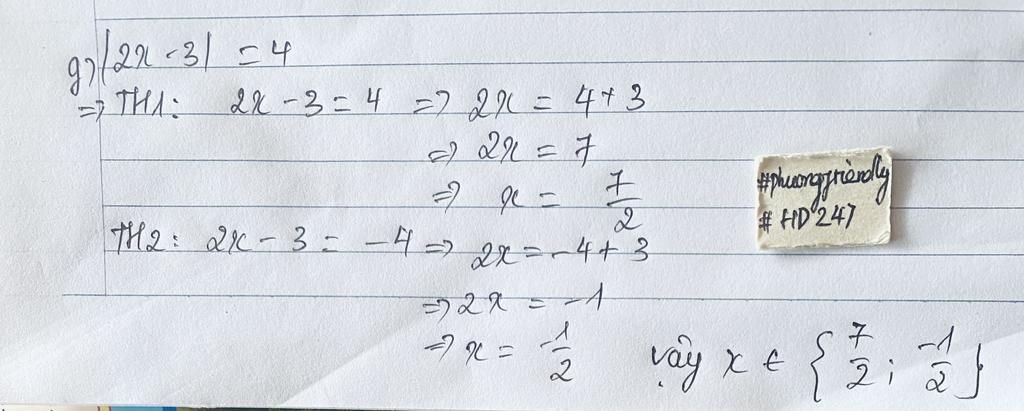 g) |2x - 3| = 4
=> TH1: 2x - 3 = 4 => 2x = 4 + 3
=> 2x = 7
=> x = 7/2
TH2: 2x - 3 = -4 => 2x = -4 + 3
=> 2x = -1
=> x = -1/2
vậy x ∈ {7/2; -1/2}
#phuongfriendly
# HD247